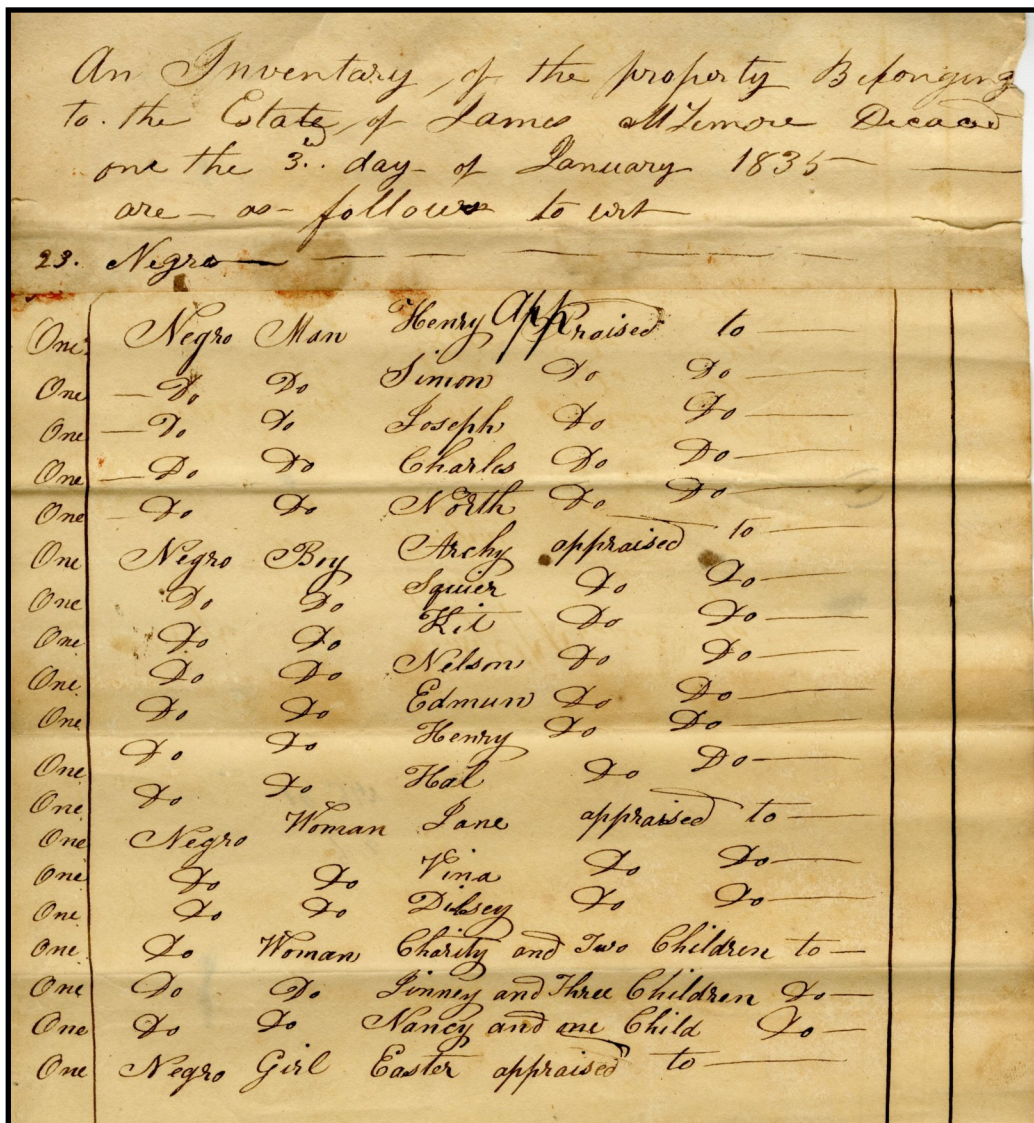 An Inventary of the property Belonging
to. the Estate of James McLemore Decaced
one the 3rd. day of January 1835
are - as - follows to wit
23. Negro
One Negro Man Henry Appraised to
One Do Do Simon Do Do
One Do Do Joseph Do Do
One Do Do Charles Do Do
One Do Do North Do Do
One Negro Boy Archy appraised to
One Do Do Squier Do Do
One Do Do Kit Do Do
One Do Do Nelson Do Do
One Do Do Edmun Do Do
One Do Do Henry Do Do
One Do Do Hal Do Do
One Negro Woman Jane appraised to
One Do Do Vina Do Do
One Do Do Dilsey Do Do
One Do Woman Charity and Two Children to
One Do Do Jinney and Three Children Do
One Do Do Nancy and one Child Do
One Negro Girl Easter appraised to